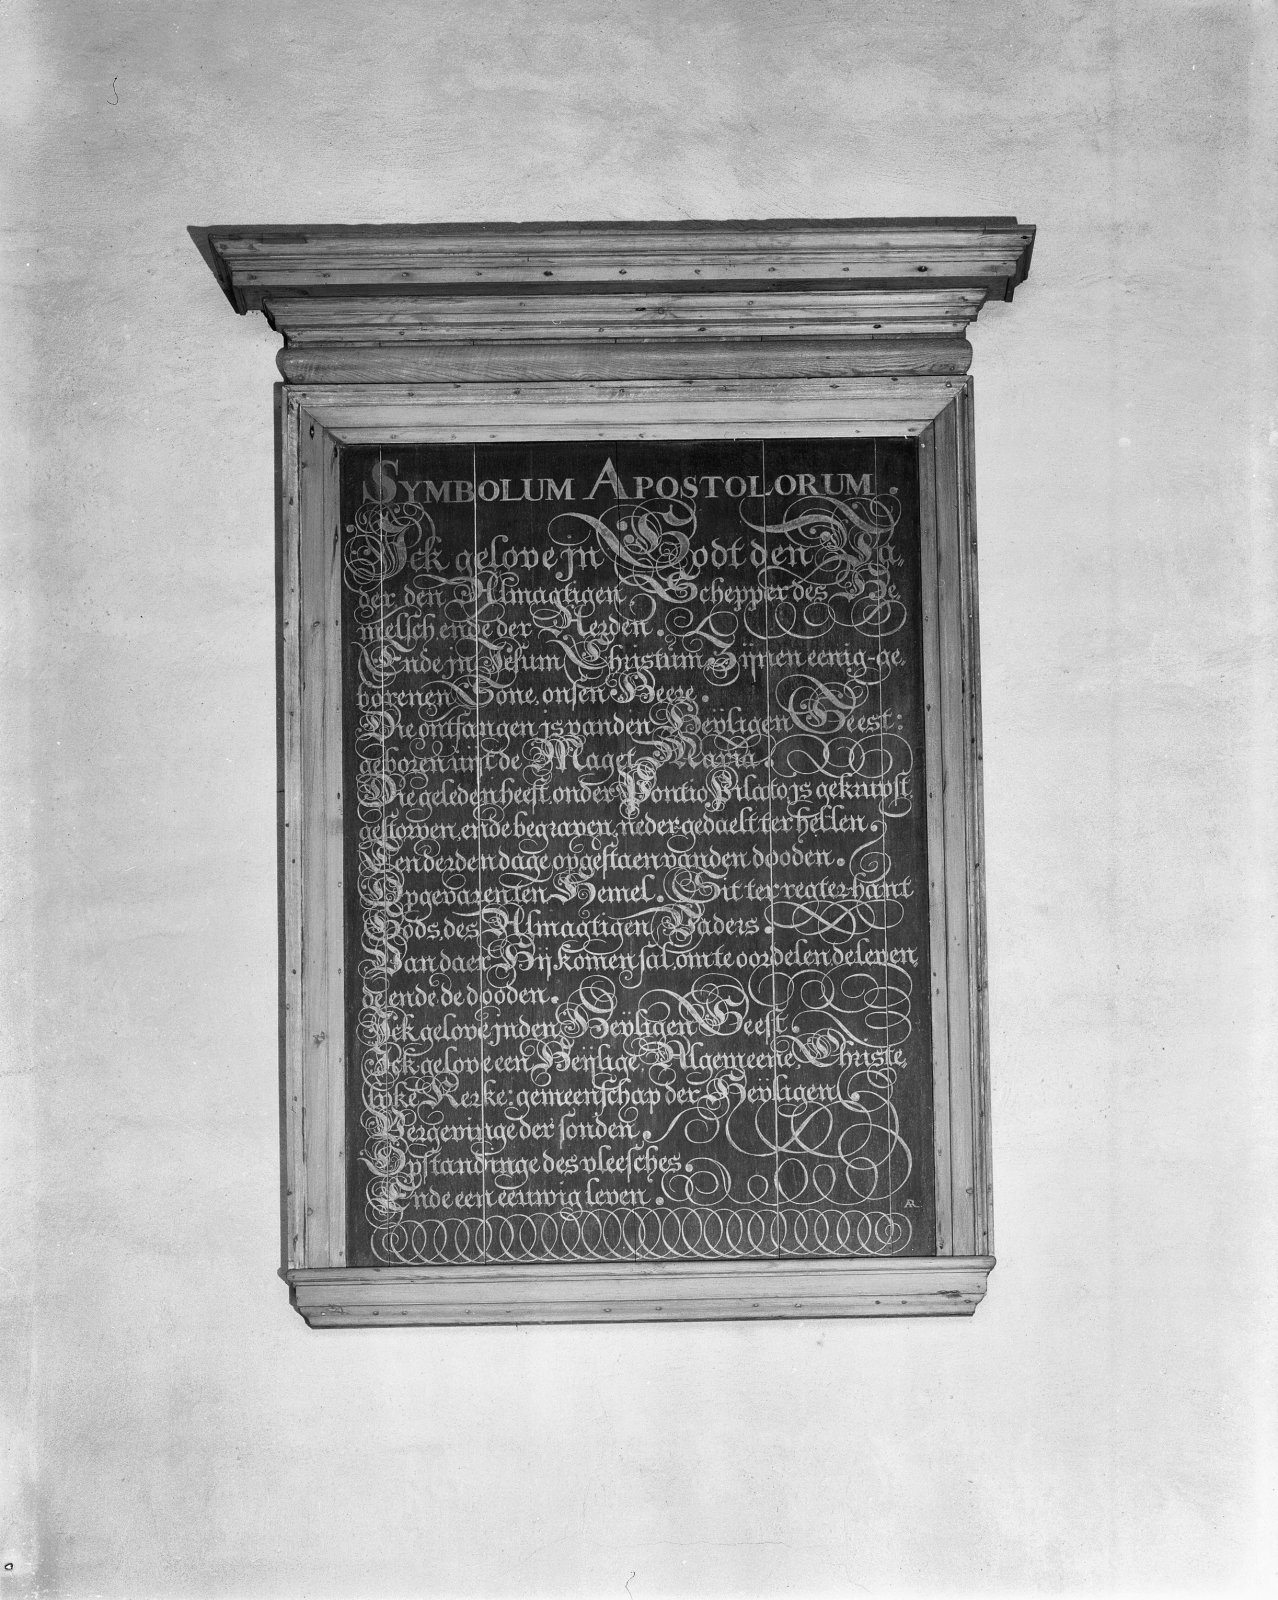 SYMBOLUM APOSTOLORUM.
Ick gelove jn Godt den Va„
der den Almagtigen Schepper des He„
melsch ende der Aerden.
Ende jn Jesum Christum Zijnen eenig-ge„
borenen Sone, onsen Heere.
Die ontfangen js vanden Heÿligen Geest:
geboren uijt de Maget Maria.
Die geleden heeft, onder Pontio Pilato, js gekruijst
gestorven, ende begraven, neder-gedaelt ter hellen.
Ten derden dage opgestaen vanden dooden.
Opgevaren ten Hemel. Sit ter regter-hant
Gods, des Almagtigen Vaders.
Van daer Hij komen sal, om te oordelen de leven„
de ende de dooden.
Ick gelove jn den Heÿligen Geest.
Ick gelove een Heijlige Algemeene Christe„
lyke Kerke: gemeenschap der Heÿligen.
Vergevinge der sonden.
Opstandinge des vleesches.
Ende een eeuwig leven.
AR